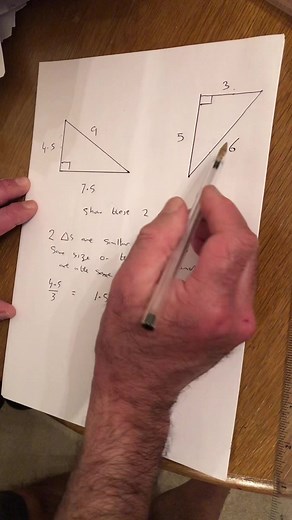 3
9
4.5
5
6
7.5
Show these 2
2 Δs are similar
Same size or
are the same
4.5/3 = 1.5